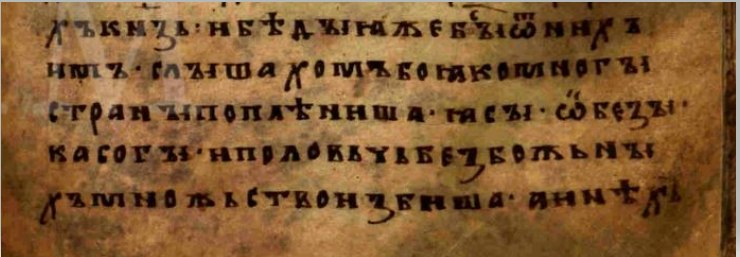 хъкнзь·ибѣдꙑꙗжебꙑⷭ҇ѿнихъ
имъ·слꙑшахомъбоꙗкомногꙑ
странꙑпоплѣниша·ꙗсꙑ·ѡ̈безꙑ·
касогꙑ·иполовьчьбезбожьнꙑ
хъмножьствоизбиша·аинѣхъ